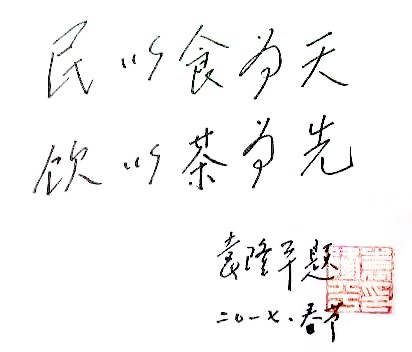 民以食为天
饮以茶为先
袁隆平题
二〇一七.春节